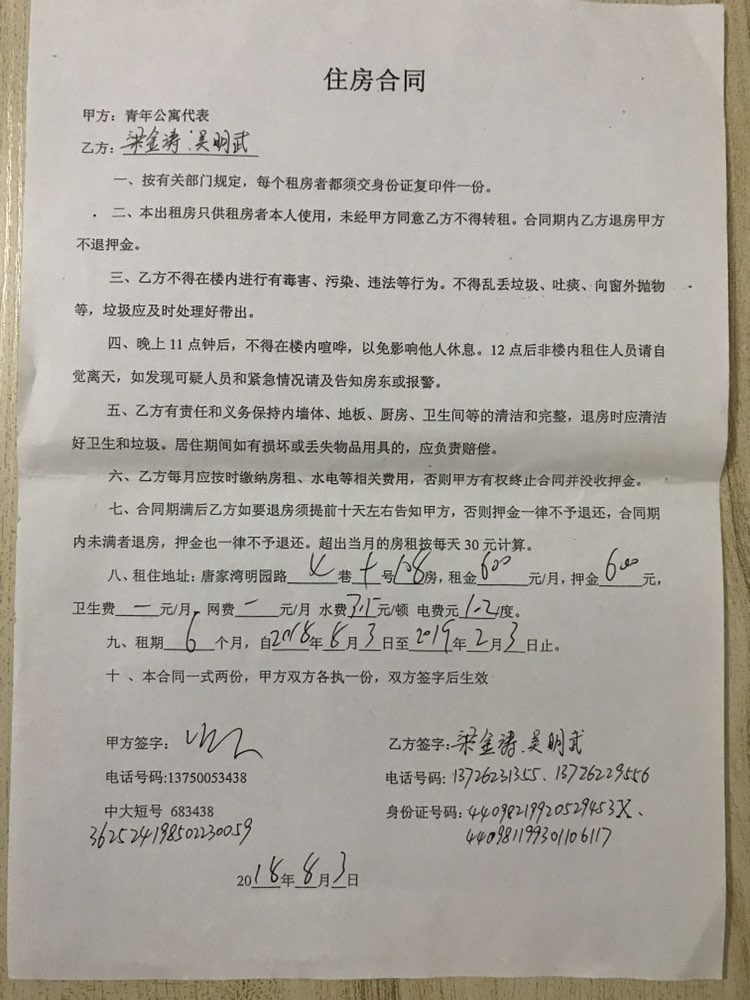 住房合同
甲方：青年公寓代表
乙方：梁金涛、吴明武
一、按有关部门规定，每个租房者都须交身份证复印件一份。
二、本出租房只供租房者本人使用，未经甲方同意乙方不得转租。合同期内乙方退房甲方
不退押金。
三、乙方不得在楼内进行有毒害、污染、违法等行为。不得乱丢垃圾、吐痰、向窗外抛物
等，垃圾应及时处理好带出。
四、晚上 11 点钟后，不得在楼内喧哗，以免影响他人休息。12 点后非楼内租住人员请自
觉离天，如发现可疑人员和紧急情况请及告知房东或报警。
五、乙方有责任和义务保持内墙体、地板、厨房、卫生间等的清洁和完整，退房时应清洁
好卫生和垃圾。居住期间如有损坏或丢失物品用具的，应负责赔偿。
六、乙方每月应按时缴纳房租、水电等相关费用，否则甲方有权终止合同并没收押金。
七、合同期满后乙方如要退房须提前十天左右告知甲方，否则押金一律不予退还，合同期
内未满者退房，押金也一律不予退还。超出当月的房租按每天 30 元计算。
八、租住地址：唐家湾明园路 巷十号108房，租金600元/月，押金600元，
卫生费一元/月，网费一元/月 水费3.5元/顿 电费元1.2/度。
九、租期6个月，自2018年8月3日至2019年2月3日止。
十 、本合同一式两份，甲方双方各执一份，双方签字后生效
甲方签字：
乙方签字：梁金涛、吴明武
电话号码:13750053438
电话号码：13726231355、13726229556
中大短号 683438
身份证号码：44098219920529453X、
362524198502230059
440981199301106117
2018年8月3日